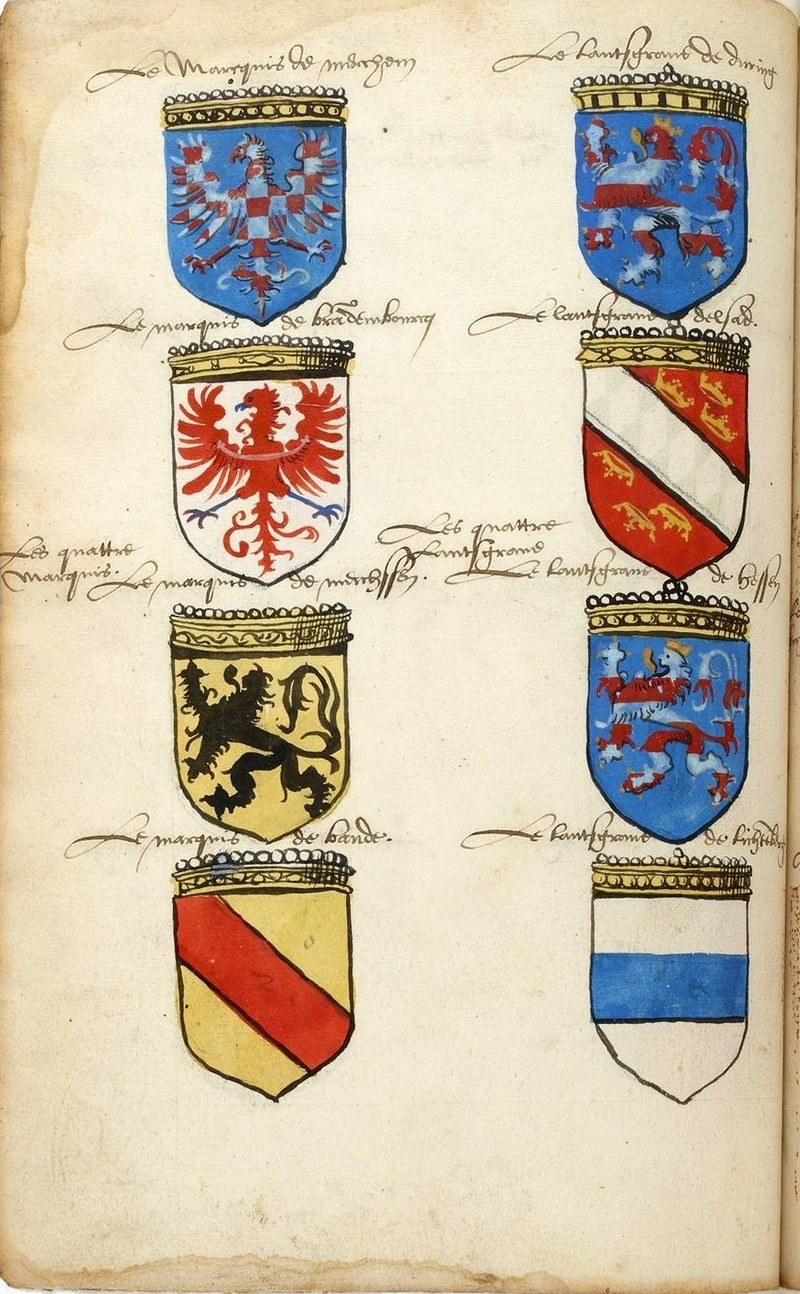 Le Marcquis de merchem
Le lantsgrave de during
Le marquis de brãdembourcq
Le lantsgrave delsad.
Les quattre
marquis.
Le marquis de merchssen.
Les quattre
lantsgrave
Le lantsgrave de hessen
Le marquis de baude.
Le lantsgrave de